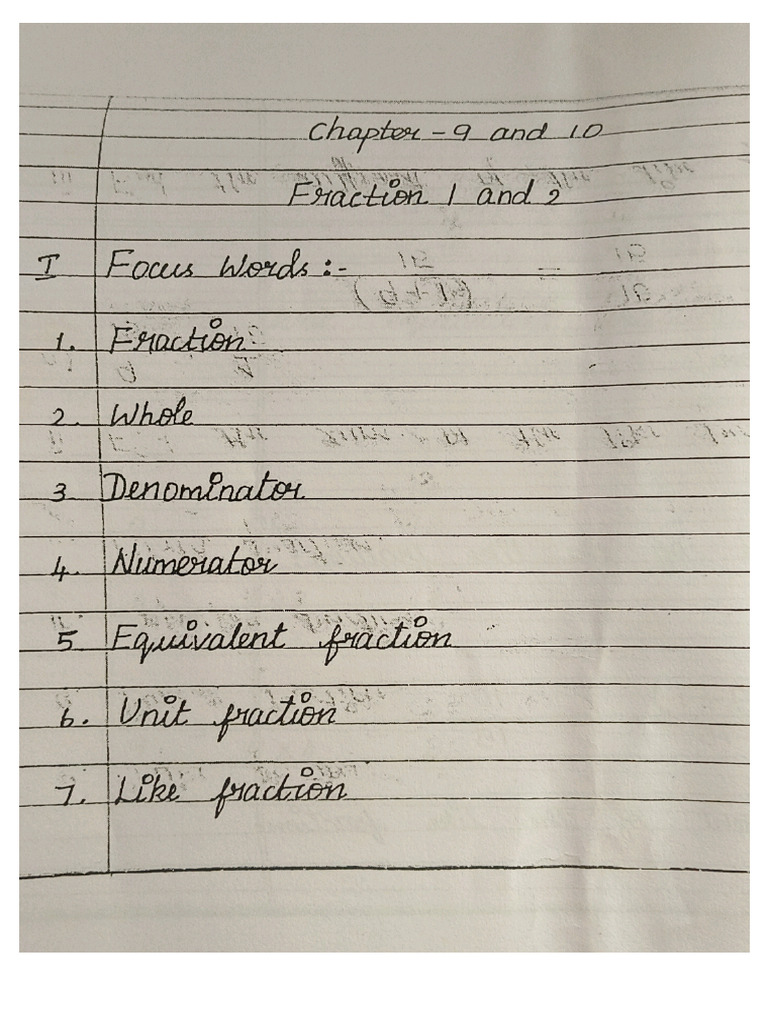 Chapter - 9 and 10
Fraction 1 and 2
I Focus Words :-
1. Fraction
2. Whole
3 Denominator
4. Numerator
5 Equivalent fraction
6. Unit fraction
7. Like fraction